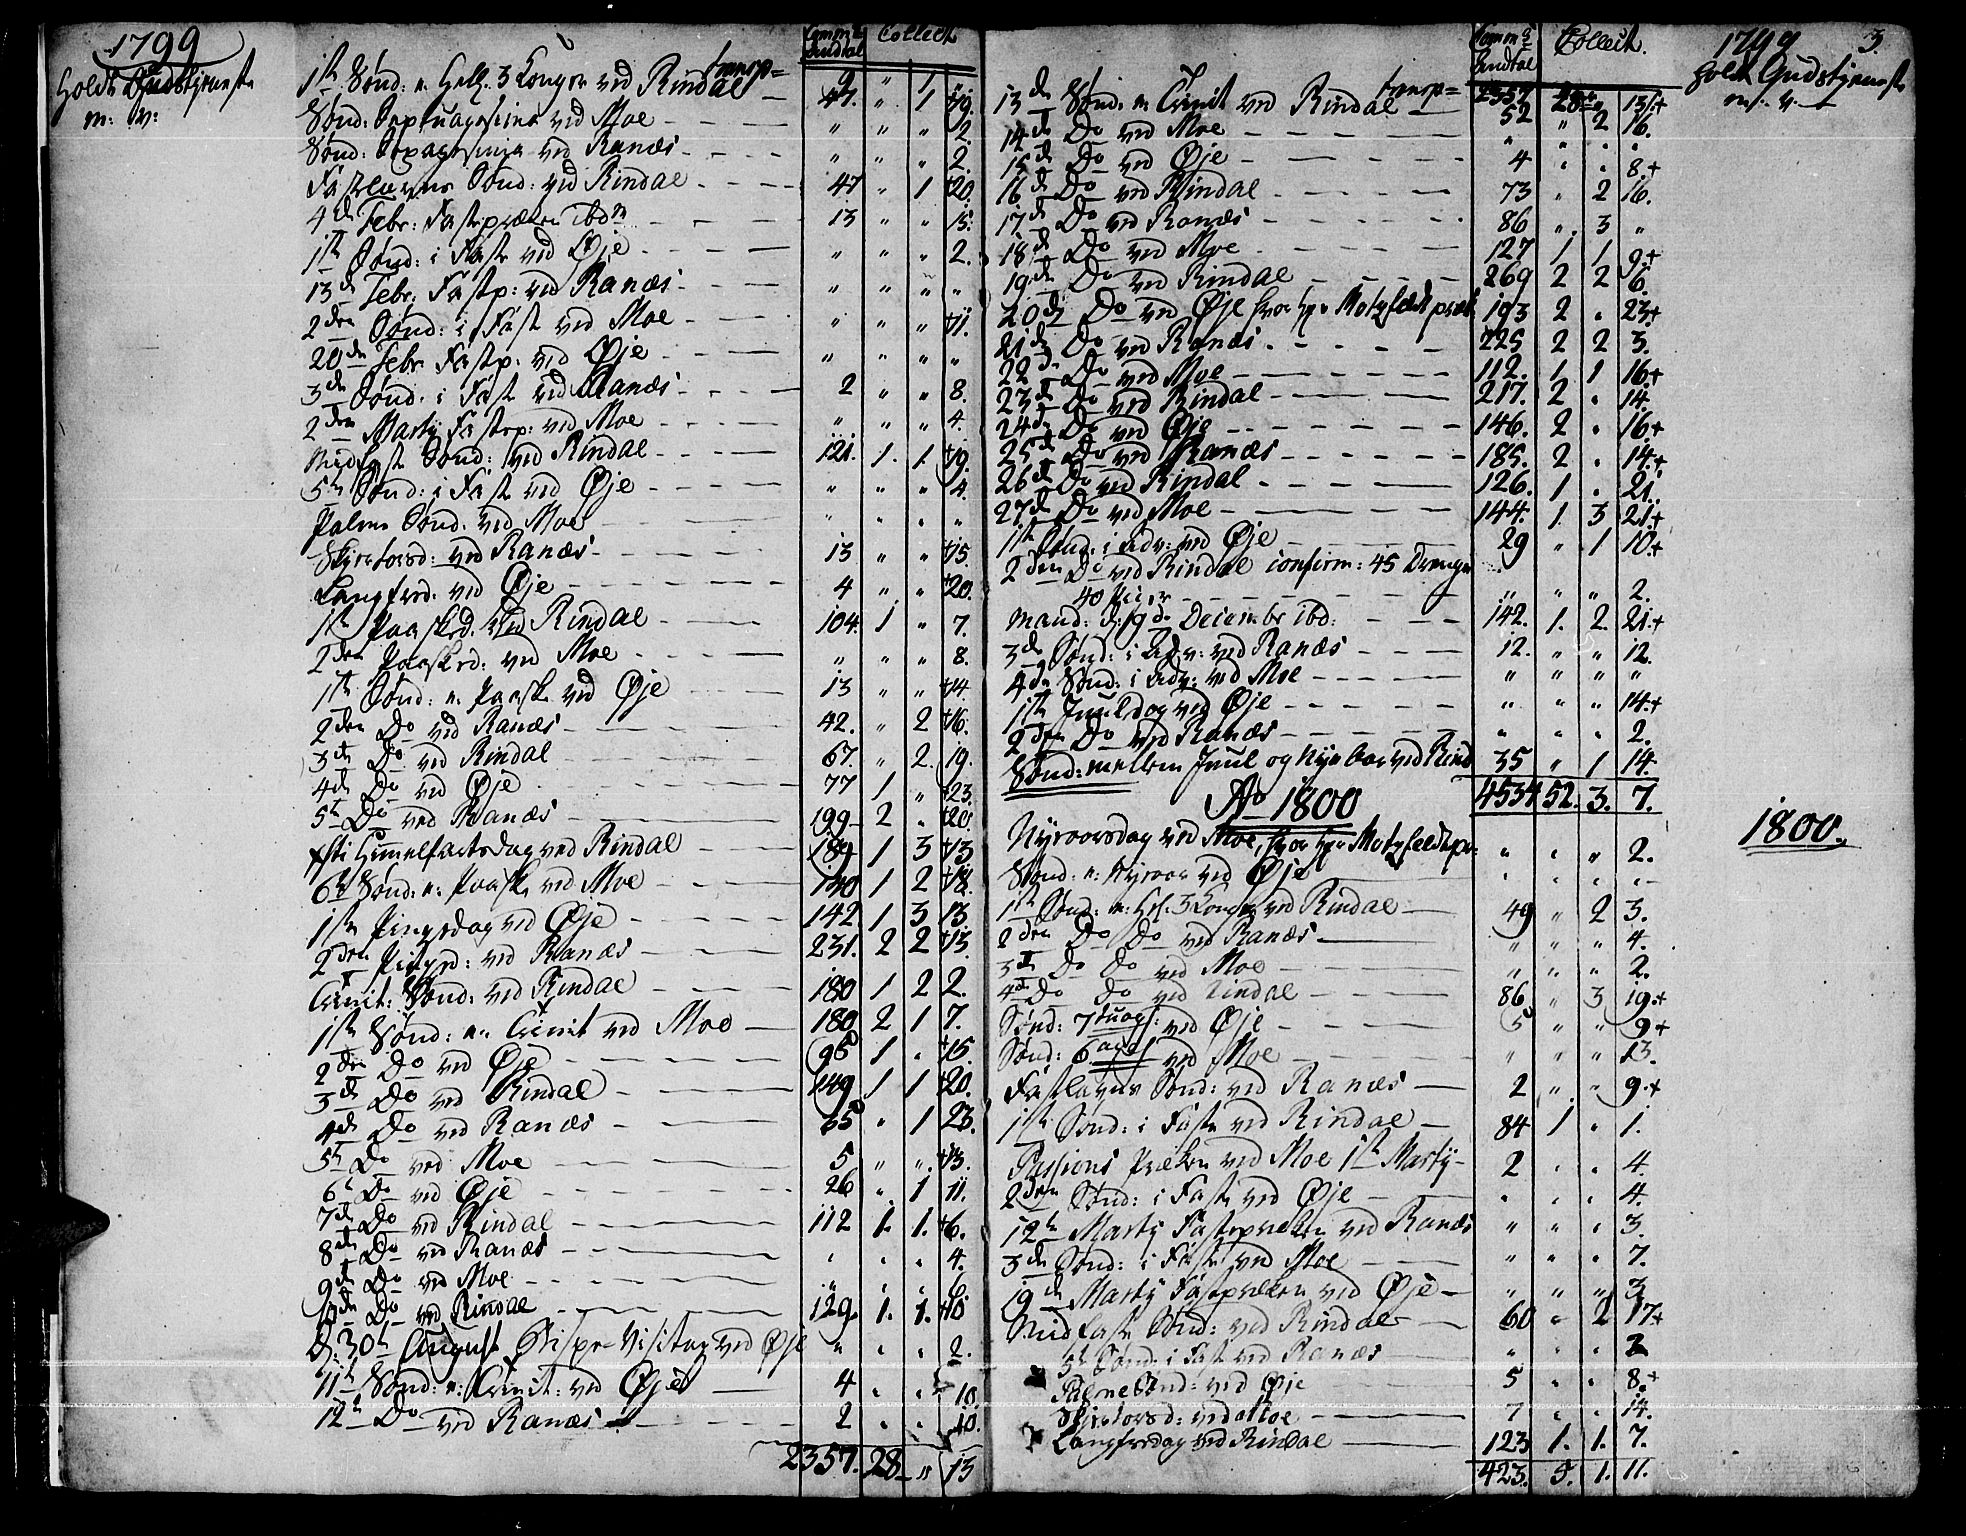 1799
Holdt Gudstjeneste
m: v:
Comm: Antal Collect
1ste Sønd: n. Hell. 3 Konger ved Rindal transp= 9 " 1 "
Sønd: Septuagesima ved Moe 47. " 1 19.
Sønd: Sexagesima ved Ranæs " " " 2.
Fastelavns Sønd: ved Rindal 47 " 1 +20.
4de Febr: Fastepræken ibdm 13 " " 15.
1ste Sønd: i Faste ved Øje " " " 2.
13de Febr. Fastp: ved Ranæs " " " "
2den Sønd: i Faste ved Moe " " " +11.
20de Febr Fastp: ved Øje " " " "
3de Sønd: i Fast ved Ranæs 2 " " 8.
2den Martij Fastep: ved Moe " " " 4.
Midfast Sønd: ved Rindal 121. 1. 1. +19.
5te Sønd: i Fast ved Øje " " " 4.
Palme Sønd. ved Moe " " " "
Skjertorsd: ved Ranæs 13 " " +15.
Langfred: ved Øje 4 " " +20.
1ste Paasked. ved Rindal 104. 1 " 7.
2den Paasked: ved Moe " " " 8.
1ste Sønd: n. Paaske ved Øje 13 " " +14.
2den Do ved Ranæs 42. " 2 +16.
3de Do ved Rindal 67. " 2. 19.
4de Do ved Øje 77 1 " +23.
5te Do ved Ranæs 199 2 " +20.
Xsti Himelfartsdag ved Rindal 189 1 3 +13
6te Sønd: n. Paaske ved Moe 130 1 2 +18.
1ste Pingsdag ved Øje 142 1 3 13
2den Pingsd: ved Ranæs 231. 2 2 +13.
Trinit: Sønd: ved Rindal 180 1 2 2.
1ste Sønd: n. Trinit ved Moe 180 2 1 7.
2den Do ved Øje 95 1 " +15.
3de Do ved Rindal 149 1 1 +20.
4de Do ved Ranæs 65 " 1 23.
5te Do ved Moe 5 " " +13.
6te Do ved Øje 26 " 1 11.
7de Do ved Rindal 112 1. 1. +6.
8de Do ved Ranæs " " " 4.
9de Do ved Moe " " " 6.
10de Do ved Rindal 129. 1. 1. +10
D. 30te August Bispe-Visitas ved Øje " " " 2.
11te Sønd: n: Trinit: ved Øje 4 " " 10.
12te Do ved Ranæs 2 " " 10.
2357. 28 " 13
Comm: Antal Collect. 1799 3.
Holdt Gudstjeneste
m: v:
13de Sønd: n. Trinit ved Rindal transp= 2357 28 " 13+
52 " 2 16.
14de Do ved Moe " " " "
15de Do ved Øje 4 " " 8+
16de Do ved Rindal 73 " 2 16.
17de Do ved Ranæs 86 " 3 "
18de Do ved Moe 127 1 1 9+
19de Do ved Rindal 269 2 2 6.
20de Do ved Øje hvor Hr Motzfeldt præk 193 2 " 23+
21de Do ved Ranæs 225 2 2 3.
22de Do ved Moe 112. 1 1 16+
23de Do ved Rindal 217. 2 " 14
24de Do ved Øje 146. 2 " 16+
25de Do ved Ranæs 185. 2 " 14+
26de Do ved Rindal 126. 1 " 21.
27de Do ved Moe 144. 1. 3 21+
1ste Sønd: i Adv: ved Øje 29 " 1 10+
2den Do ved Rindal confirm: 45 Drenge
40 Piger " " " 2.
Mand: d: 9de December ibd: 142. 1. 2. 21+
3de Sønd: i Adv: ved Ranæs 12. " " 12.
4de Sønd: i Adv: ved Moe " " " "
1ste Juuldag ved Øje " " " 14+
2den Do ved Ranæs " " " 2.
Sønd: mellem Juul og Nyeaar ved Rind 35 " 1 14.
4534 52. 3. 7.
Ao 1800
1800.
Nyeaarsdag ved Moe, hvor Hr Motzfeldt pr: " " " 2.
Sønd: n: Nyeaar ved Øje " " " "
1ste Sønd: n. Hel. 3 Konger ved Rindal 49 " 2 3.
2den Do Do ved Ranæs " " " 4.
3de Do Do ved Moe " " " 2.
4de Do Do ved Rindal 86 " 3 19+
Sønd: 7tuags: ved Øje 5 " " 9+
Sønd: 6ages ved Moe " " " 13.
Fastlavns Sønd: ved Ranæs 2 " " 9+
1ste Sønd: i Faste ved Rindal 84 1 " 1.
Passions Præken ved Moe 1ste Martij 2 " " 4.
2den Sønd: i Faste ved Øje " " " 4.
12te Martij Fastepræken ved Ranæs " " " 3.
3de Sønd: i Faste ved Moe " " " 7.
19de Martij Fastpræken ved Øje " " " 3
Midfaste Sønd: ved Rindal 60 " 2 17+
5te Sønd: i Fast ved Ranæs " " " 2
Palme Sønd: ved Øje 5 " " 8+
Skjertorsd: ved Moe 7 " " 14.
Langfredag ved Rindal 123 1. 1. 7.
423. 5. 1. 11.